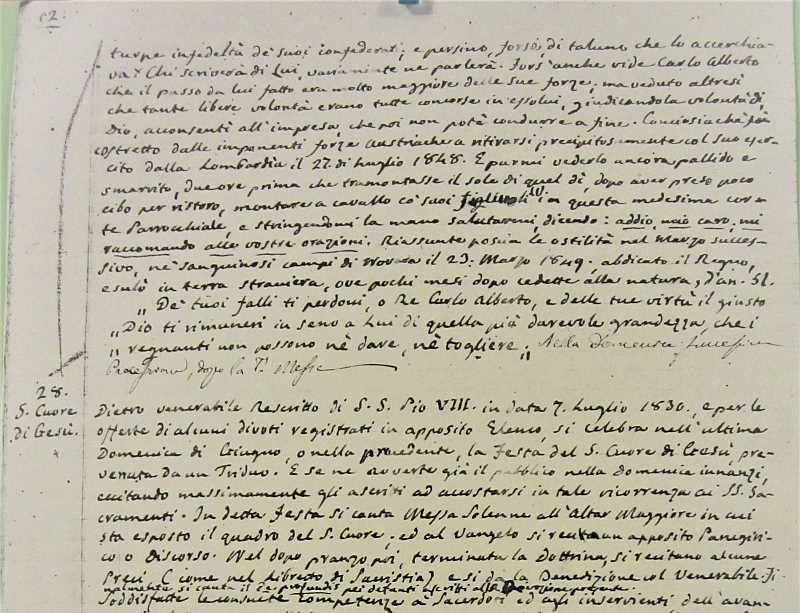 62.
turpe infedeltà de' suoi confederati; e persino, forse, di taluno, che lo accerchia-
va? Chi scriverà di Lui, variamente ne parlerà. Fors' anche vide Carlo Alberto
che il passo da lui fatto era molto maggiore delle sue forze; ma veduto altresì
che tante libere volontà erano tutte concorse in essolui, giudicandola volontà di
Dio, acconsentì all'impresa, che poi non potè condurre a fine. Conciosiachè poi
costretto dalle imponenti forze Austriache a ritirarsi precipitosamente col suo eser-
cito dalla Lombardia il 27. di Luglio 1848. E parmi vederlo ancora pallido e
smarrito, due ore prima che tramontasse il sole di quel dì, dopo aver preso poco
cibo per ristoro, montare a cavallo co' suoi figliuoli in questa medesima cor-
te Parrocchiale, e stringendomi la mano salutarmi, dicendo: addio, mio caro, mi
raccomando alle vostre orazioni. Riassunte poscia le ostilità nel Marzo succes-
sivo, ne' sanguinosi campi di Novara il 23: Marzo 1849. abdicato il Regno,
esulò in terra straniera, ove pochi mesi dopo cedette alla natura, d'an. 51.
„ De' tuoi falli ti perdoni, o Re Carlo Alberto, e delle tue virtù il giusto
„ Dio ti rimuneri in seno a Lui di quella più durevole grandezza, che i
„ regnanti non possono nè dare, nè togliere. „ Nella Domenica
dopo la Messa
28.
S. Cuore
di Gesù.
Dietro venerabile Rescritto di S. S. Pio VIII. in data 7. Luglio 1830., e per le
offerte di alcuni divoti registrati in apposito Elenco, si celebra nell'ultima
Domenica di Giugno, o nella precedente, la Festa del S. Cuore di Gesù, pre-
venuta da un Triduo. E se ne avverte già il pubblico nella domenica innanzi,
eccitando massimamente gli ascritti ad accostarsi in tale ricorrenza ai SS. Sa-
cramenti. In detta Festa si canta Messa Solenne all'Altar Maggiore in cui
sta esposto il quadro del S. Cuore; ed al Vangelo si recita un apposito Panegiri-
co o Discorso. Nel dopo pranzo poi, terminata la Dottrina, si recitano alcune
Preci (come nel Libretto di Sacristia) e si dà la Benedizione col Venerabile. Fi-
nalmente si canta il De profundis pei defunti ascritti alla
Soddisfatte le consuete competenze a' Sacerdoti ed agli inservienti dell'avan-